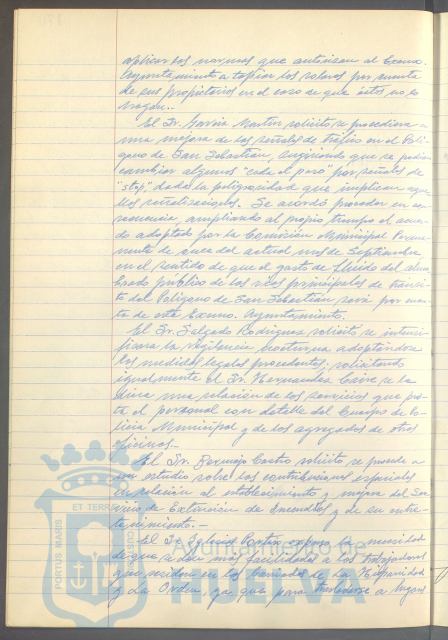 aplicar las normas que autorizan al Excmo.
Ayuntamiento a tapiar los solares por cuenta
de sus propietarios en el caso de que éstos no lo
hagan.-
El Sr. García Martín solicitó se procediera a
una mejora de las señales de tráfico en el Polí-
gono de San Sebastián, sugiriendo que se podían
cambiar algunos "ceda el paso" por señales de
"stop" dada la peligrosidad que implican aque-
llas señalizaciones. Se acordó proceder en con-
secuencia, ampliando al propio tiempo el acuer-
do adoptado por la Comisión Municipal Perma-
nente de once del actual mes de Septiembre
en el sentido de que el gasto de fluido del alum-
brado público de las vías principales de tránsi-
to del Polígono de San Sebastián será por cuen-
ta de este Excmo. Ayuntamiento.
El Sr. Salgado Rodríguez solicitó se intensi-
ficara la vigilancia nocturna adoptándose
las medidas legales procedentes; solicitando
igualmente el Sr. Hernández se le
diera una relación de los servicios que pres-
ta el personal con detalle del Cuerpo de Po-
licía Municipal y de los agregados de otras
oficinas.-
El Sr. Bermejo Castro solicitó se proceda a
un estudio sobre las contribuciones especiales
en relación al establecimiento y mejora del Ser-
vicio de Extinción de Incendios y de su entre-
tenimiento.-
El Sr. Iglesias expone la necesidad
de que se den más facilidades a los trabajadores
que residen en las barriadas de La Hispanidad
y La Orden, ya que para trasladarse a lugares
PORTUS MARIS
ET TERRAE
CUSTODIA
Ayuntamiento de
HUELVA